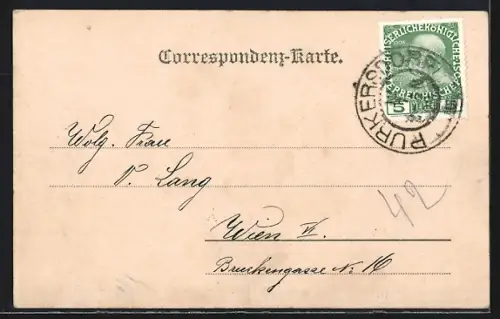 Correspondenz-Karte.
KAISERLICHEKÖNIGLICHE
ÖSTERREICHISCHE
5
PURKERSDORF
Wolg. Frau
V. Lang
42
Wien VI.
Bruckengasse No. 16